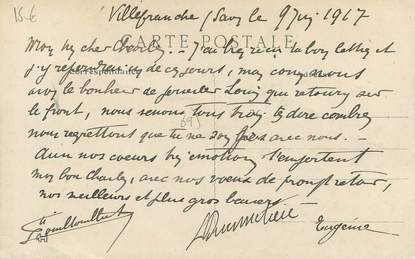 15 €
Villefranche / Saône le 9 Juin 1917
CARTE POSTALE
Correspondance
Mon cher Charley. – J'ai bien reçu ta bonne lettre et
j'y répondrai un de ces jours, mais comme nous
avons le bonheur de posséder Louis qui retourne sur
le front, nous venons tous trois te dire combien
nous regrettons que tu ne sois pas avec nous. –
nos coeurs l'emportent
mon bon Charley, avec nos voeux de prompt retour,
nos meilleurs et plus gros baisers.
Eugénie